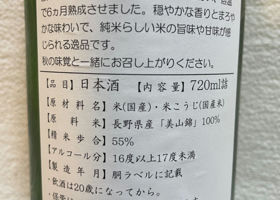 で6カ月熟成させました。穏やかな香りとまろや
かな味わいで、純米らしい米の旨味や甘味が感
じられる逸品です。
秋の味覚と一緒にお召し上がりください。
【品目】日本酒 【内容量】720ml詰
【原材料名】米(国産)・米こうじ(国産米)
【原料米】長野県産「美山錦」100%
【精米歩合】55%
【アルコール分】16度以上17度未満
【製造年月】胴ラベルに記載
・飲酒は20歳になってから。